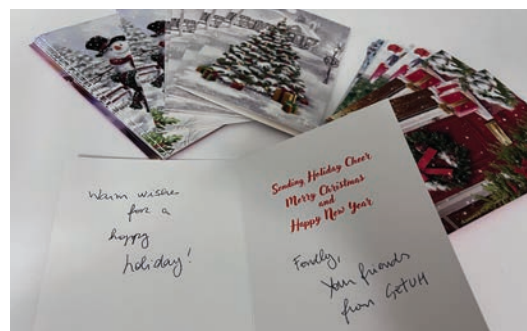 Warm wishes
for a
happy
holiday!
Sending Holiday Cheer
Merry Christmas
and
Happy New Year
Fondly,
Your friends
from GetUM